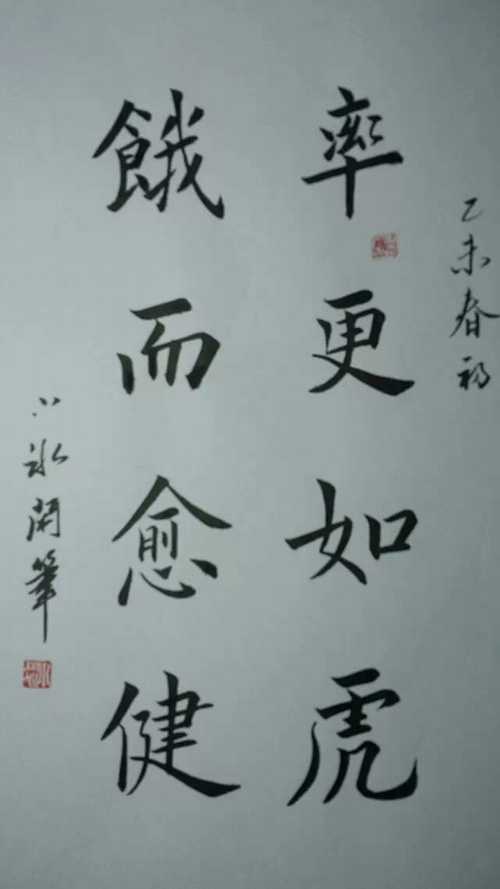 乙未春初
率更如虎
餓而愈健
小冰開筆